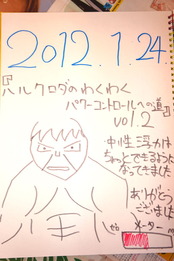 2012.1.24.
『ハルクロダのわくわく
パワーコントロールへの道』
vol.2
中性浮力は
ちょっとできるように
なってきました
ありがとう
ございました
メーター